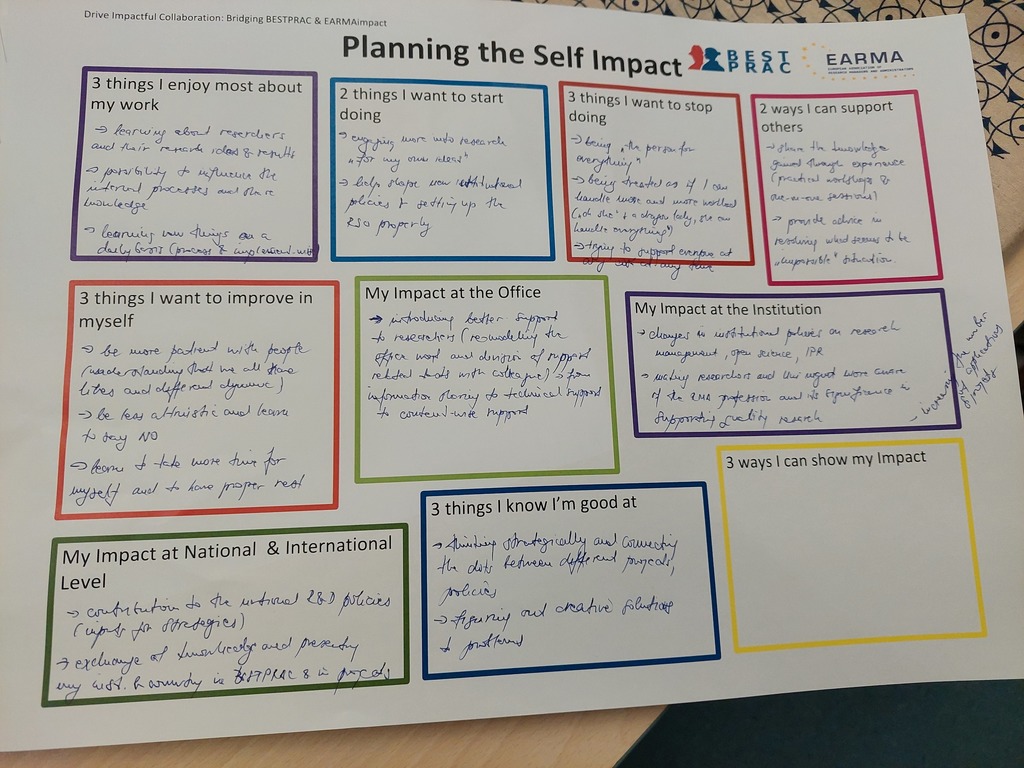 Drive Impactful Collaboration: Bridging BESTPRAC & EARMAimpact
Planning the Self Impact
BEST
PRAC
EARMA
EUROPEAN ASSOCIATION OF
RESEARCH MANAGERS AND ADMINISTRATORS
3 things I enjoy most about
my work
→ learning about reserchers
and their research ideas & results
→ possibility to influence the
internal processes and share
knowledge
→ learning new things on a
daily basis (process &
2 things I want to start
doing
→ engaging more into research
"for my own ideas"
→ help shape new institutional
policies & setting up the
RSO properly
3 things I want to stop
doing
→ being "the person for
everything"
→ being treated as if I can
handle more and more workload
("oh she's a dragon lady, she can
handle everything")
→ trying to support everyone at
any time
2 ways I can support
others
→ share the knowledge
gained through experience
(practical workshops &
one-on-one sessions)
→ provide advice in
resolving what seems to be
"impossible" situation.
3 things I want to improve in
myself
→ be more patient with people
(understanding that we all have
lives and different dynamic)
→ be less altruistic and learn
to say NO
→ learn to take more time for
myself and to have proper rest
My Impact at the Office
→ introducing better support
to researchers (re-modeling the
office work and division of support
related tasks with colleagues) → from
information sharing to technical support
to content-wise support
My Impact at the Institution
→ changes in institutional policies on research
management, open science, IPR
→ making researchers and more aware
of the RMA profession and its significance in
supporting quality research
→ increasing the number
of applications
projects
3 ways I can show my Impact
My Impact at National & International
Level
→ contribution to the national R&D policies
(inputs for strategies)
→ exchange of knowledge and presenting
my inst. & country in BESTPRAC & in projects
3 things I know I'm good at
→ thinking strategically and connecting
the dots between different projects,
policies
→ figuring out creative solutions
to problems